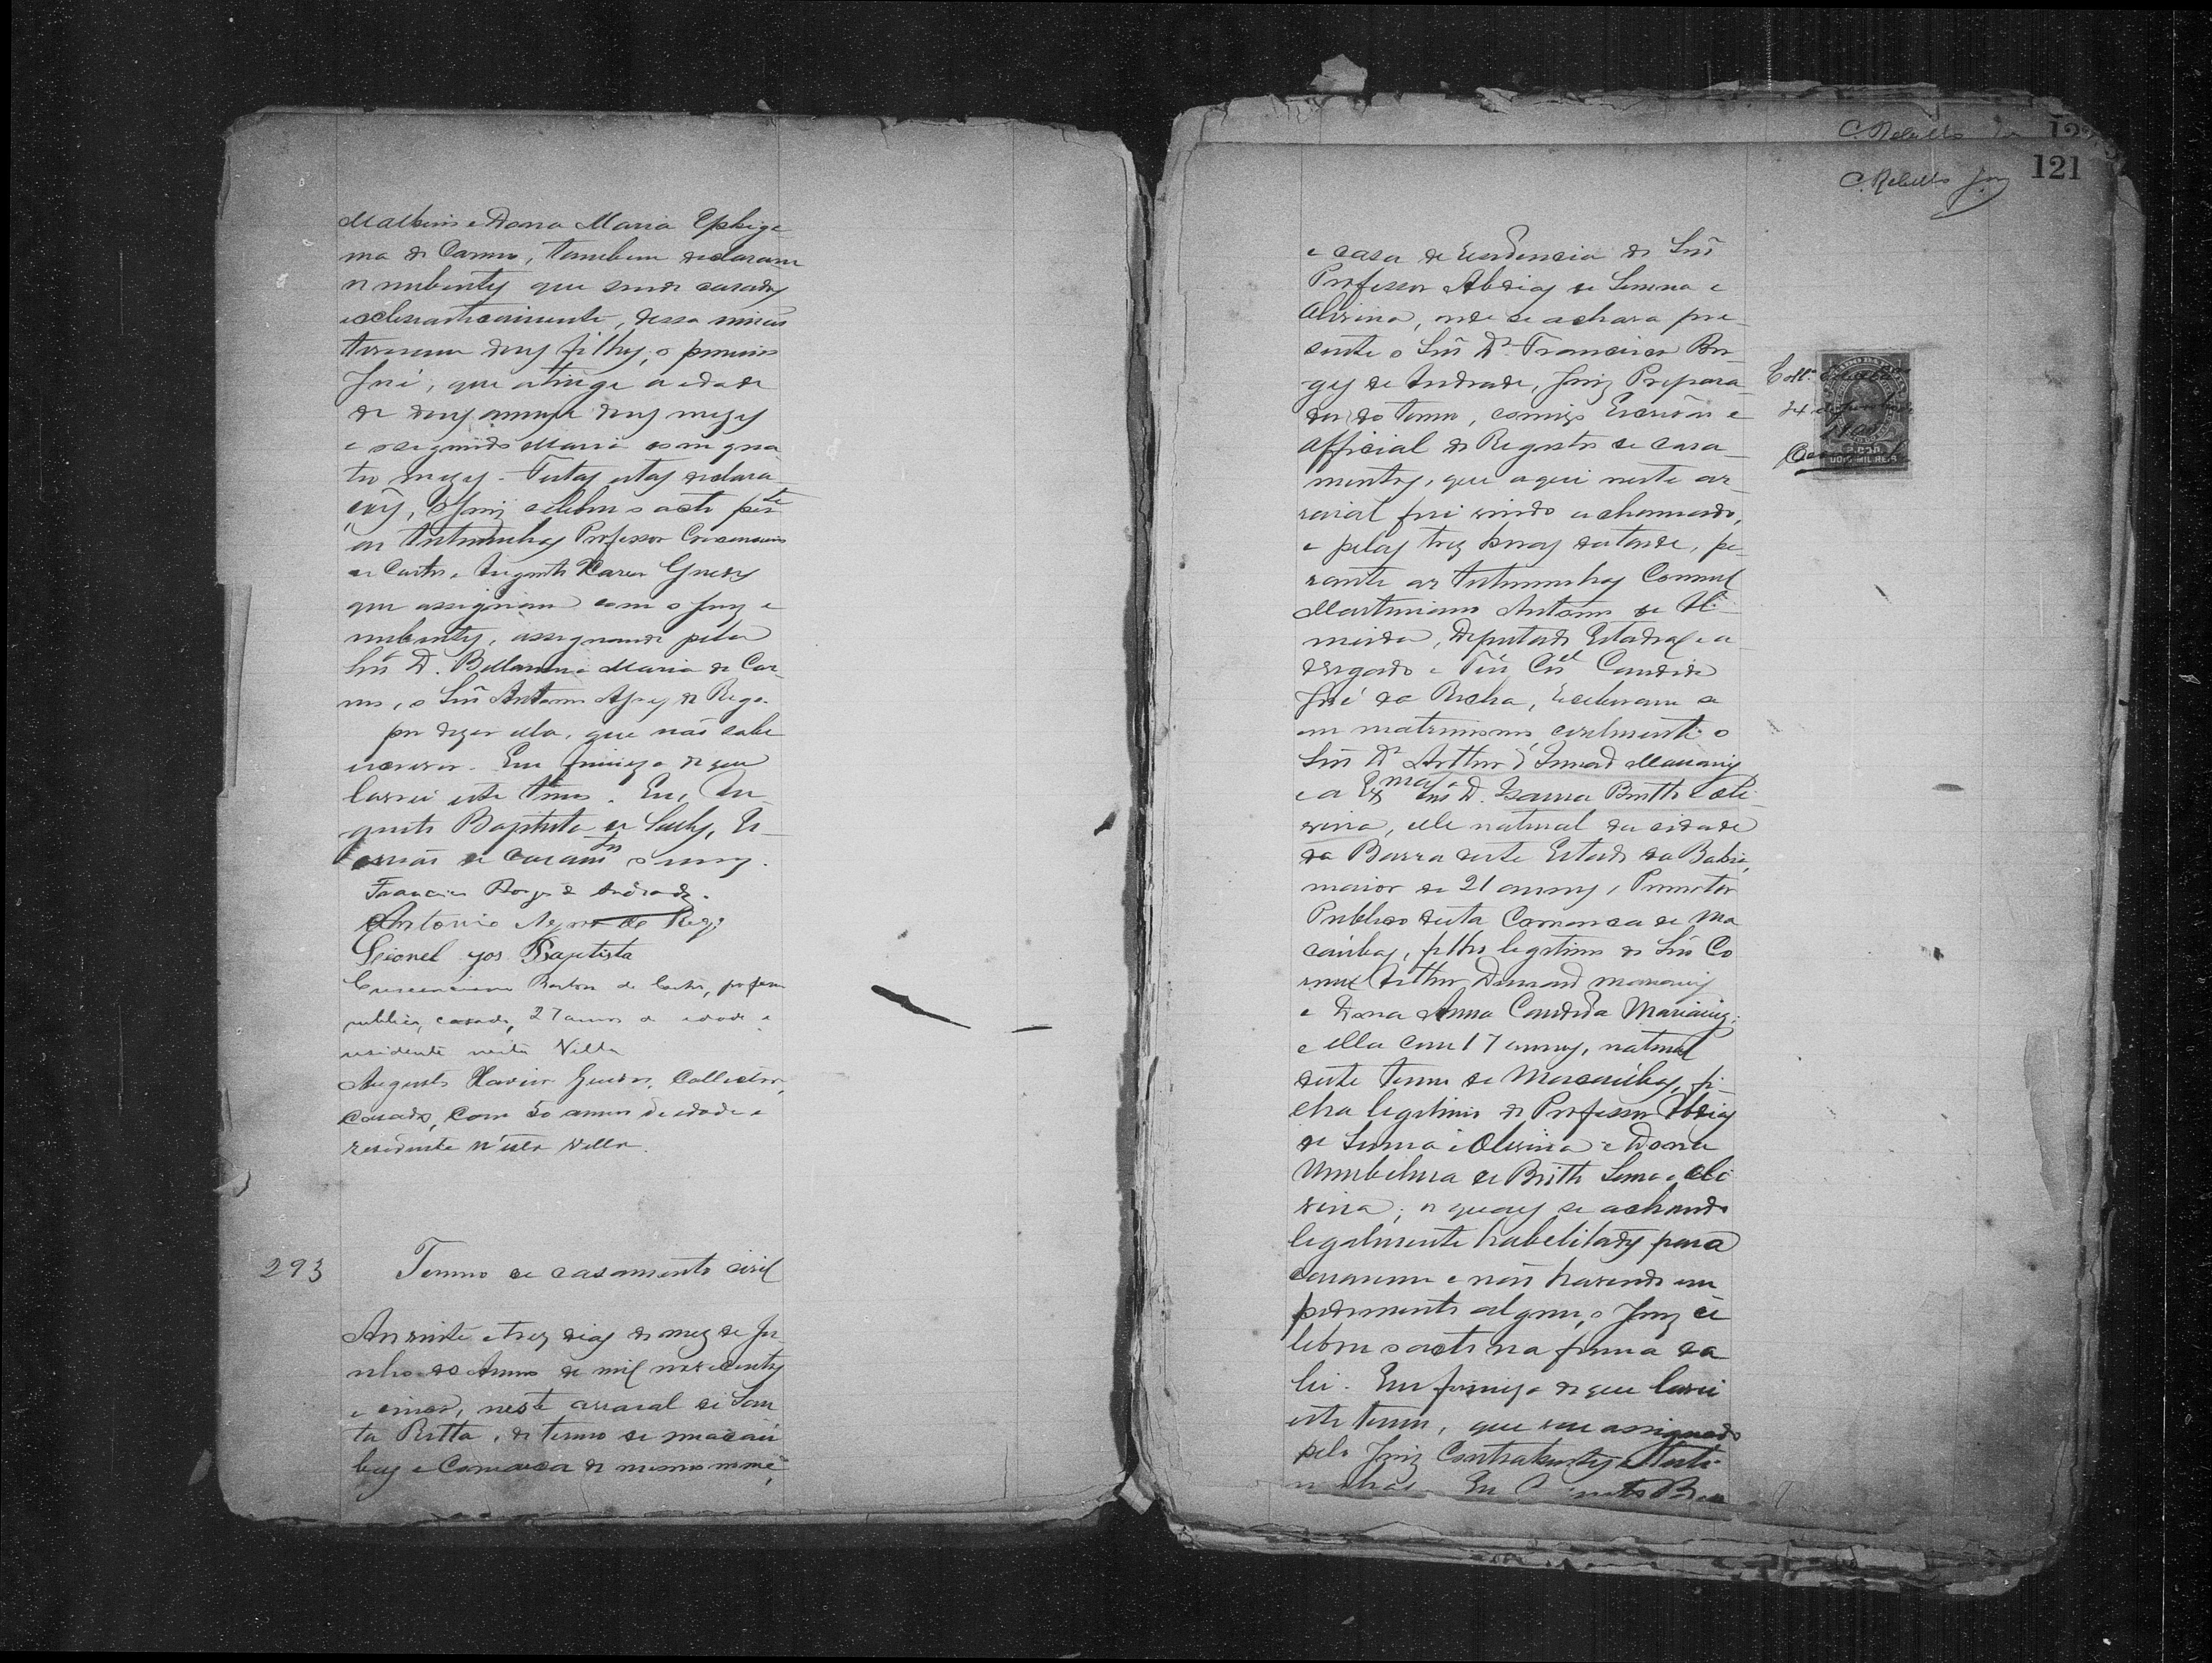 Mathias e Dona Maria Ephige
nia do Carmo, tambem declararam
os nubentes que sendo casados
ecclesiasticamente, dessa união
tiveram dous filhos, o primeiro
José, que atinge a edade
de dous annos e dous mezes
e o segundo Maria com qua
tro mezes. Feitas estas declara
ções, o Juiz celebrou o acto per.te
as testemunhas Professor Crescenciano
de Castro e Augusto Xavier Guedes
que assignam com o Juiz e
nubentes, assignando pela
Snrª D. Maria do Car
mo, o Snr Antonio do Rego
por dizer ella, que não sabe
escrever. Em firmeza do que
lavrei este termo. Eu, Au
gusto Baptista de Es
crivão de casam.tos o escrevy.
Francisco Borges de Andrade.
Antonio do Rego
Leonel Jos Baptista
Crescenciano de Castro, professor
publico, casado, 27 annos de edade e
residente nesta Villa
Augusto Xavier Collector,
Casado, com 50 annos de edade e
residente n'esta Villa.
293 Termo de casamento civil
Aos vinte e trez dias do mez de Ju
nho do Anno de mil novecentos
e cinco, neste arraial de San
ta Ritta, do termo de Macaú
bas e Comarca do mesmo nome,
C. Rebello 122
C. Rebello Jor 121
e casa de residencia do Snr
Professor Abdias de Senna e
Oliveira, onde se achava pre
sente o Snr Dr Francisco Bor
ges de Andrade, Juiz Prepara
dor do termo, comigo Escrivão e
Official do Registro de casa
mentos, que aqui neste ar
raial fui vindo a chamado,
e pelas trez horas da tarde, pe
rante as testemunhas Coronel
Martiniano Antonio de Al
meida, Deputado Estadual e a
dvogado e Ten Cel Candido
José da Rocha, receberam se
em matrimonio civilmente o
Snr Dr Arthur Durand Mariani
e a Exma Snra D. Isaura Britto e Oli
veira, elle natural da cidade
da Barra deste Estado da Bahia,
maior de 21 annos, Promotor
Publico desta Comarca de Ma
caúbas, filho legitimo do Snr Co
ronel Arthur Durand Mariani
e Dona Anna Candida Mariani;
e ella com 17 annos, natural
deste termo de Macaúbas, fi
lha legitima do Professor Abdias
de Senna e Oliveira e Dona
Umbelina de Britto Senna e Oli
veira; os quaes se achando
legalmente habelitados para
casarem e não havendo im
pedimento algum, o Juiz ce
lebrou o acto na forma da
lei. Em firmeza do que lavrei
este termo, que vae assignado
pelo Juiz Contrahentes e teste
munhas. Eu Augusto Bap
Coll.ª
24 de Junho de
1905
2.000
DOIS MIL REIS